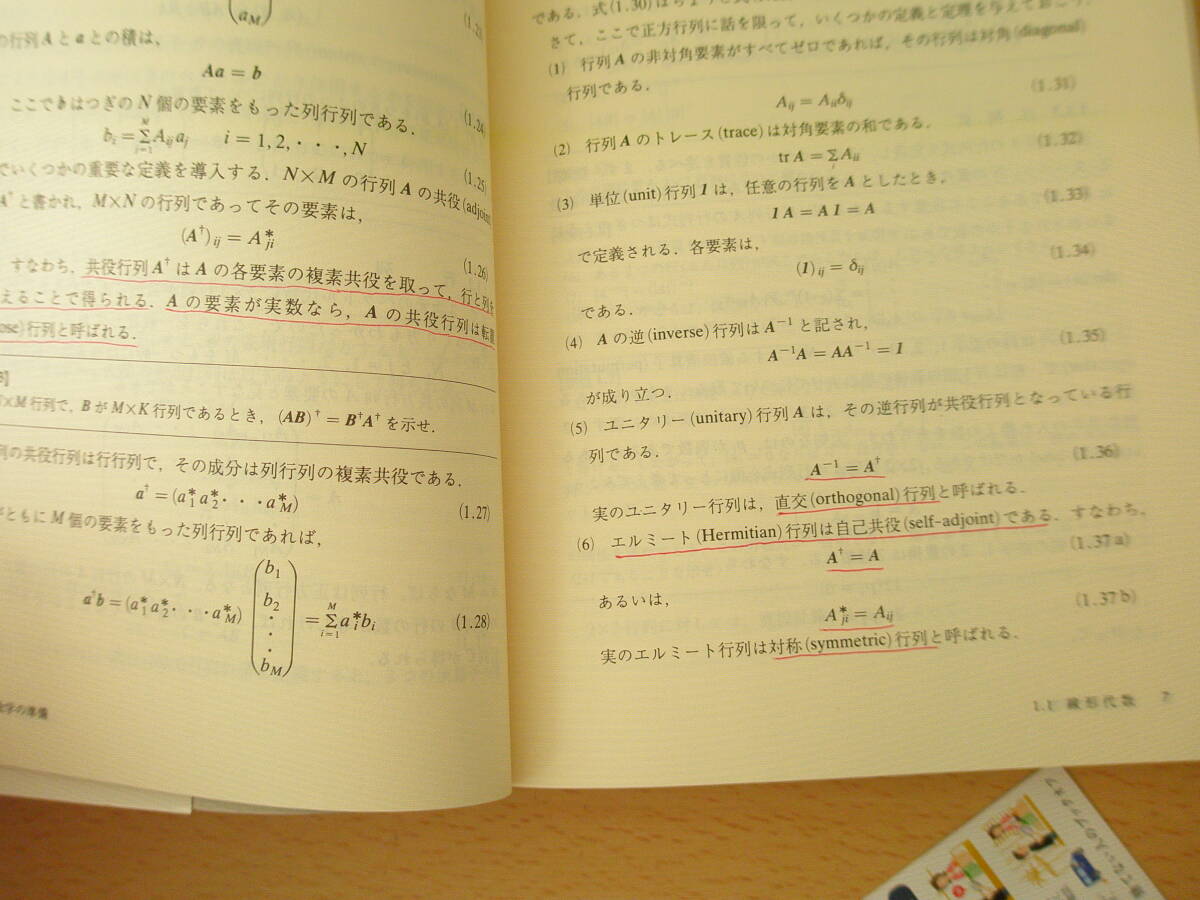 a_M
の行列 A と a との積は,
Aa = b
ここで b はつぎの N 個の要素をもった列行列である. (1.24)
b_i = Σ_{i=1}^{M} A_ij a_j  i = 1, 2, ・・・, N
でいくつかの重要な定義を導入する. N×M の行列 A の共役(adjoint (1.25)
A† と書かれ, M×N の行列であってその要素は,
(A†)_ij = A*_ji
すなわち, 共役行列 A† は A の各要素の複素共役を取って, 行と列を (1.26)
えることで得られる. A の要素が実数なら, A の共役行列は転置
ose)行列と呼ばれる.
×M 行列で, B が M×K 行列であるとき, (AB)† = B†A† を示せ.
列の共役行列は行行列で, その成分は列行列の複素共役である.
a† = (a*_1 a*_2 ・ ・ ・ a*_M) (1.27)
がともに M 個の要素をもった列行列であれば,
a†b = (a*_1 a*_2 ・ ・ ・ a*_M) (b_1 b_2 ・ ・ b_M) = Σ_{i=1}^{M} a*_i b_i (1.28)
学の準備
さて, ここで正方行列に話を限って, いくつかの定義と定理を与えておこう.
(1) 行列 A の非対角要素がすべてゼロであれば, その行列は対角(diagonal)
行列である.
A_ij = A_ii δ_ij (1.31)
(2) 行列 A のトレース(trace)は対角要素の和である.
tr A = Σ_i A_ii (1.32)
(3) 単位(unit)行列 1 は, 任意の行列を A としたとき,
1A = A1 = A (1.33)
で定義される. 各要素は,
(1)_ij = δ_ij (1.34)
である.
(4) A の逆(inverse)行列は A⁻¹ と記され,
A⁻¹A = AA⁻¹ = 1 (1.35)
が成り立つ.
(5) ユニタリー(unitary)行列 A は, その逆行列が共役行列となっている行
列である.
A⁻¹ = A† (1.36)
実のユニタリー行列は, 直交(orthogonal)行列と呼ばれる.
(6) エルミート(Hermitian)行列は自己共役(self-adjoint)である. すなわち,
A† = A (1.37 a)
あるいは,
A*_ji = A_ij (1.37 b)
実のエルミート行列は対称(symmetric)行列と呼ばれる.
1.1 線形代数 7